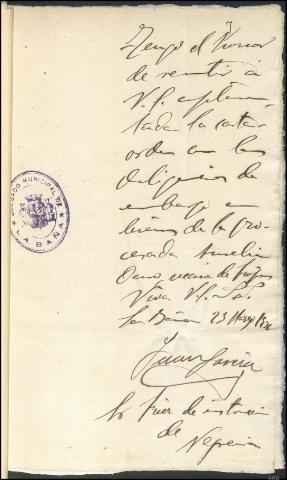 Tengo el honor
de remitir á
V.S. cumplimen-
tada la carta
orden con las
diligencias de
embargo en
bienes de la pro-
cesada Amelia
vecina de
Viva V.S.
La Baña 23 Mayo
Juan García
Sr Juez de instrucción
de
Negreira
JUZGADO MUNICIPAL DE
LA BAÑA